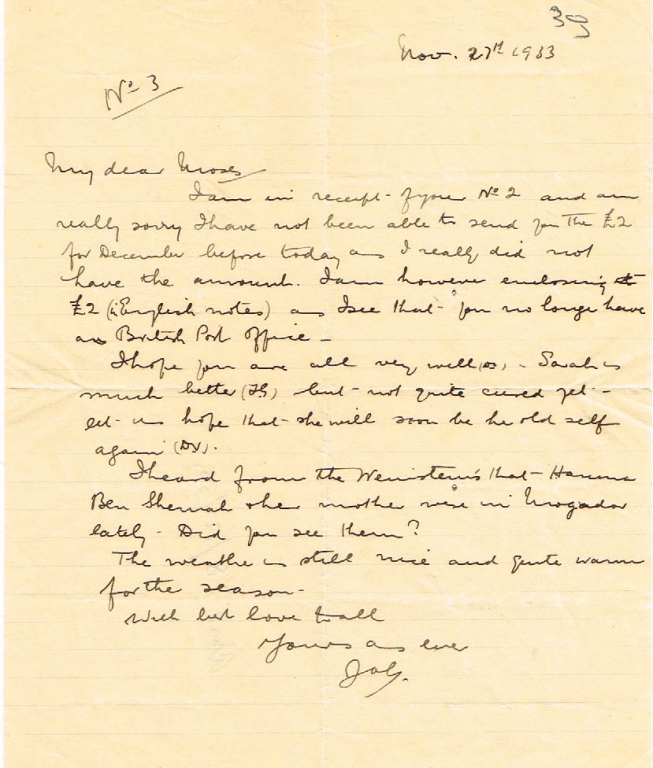 30
Nov. 27th 1933
No 3
My dear Moses
I am in receipt of your No 2 and am
really sorry I have not been able to send you the £2
for December before today as I really did not
have the amount. I am however enclosing
£2 (in English notes) as I see that you no longer have
a British Post Office -
I hope you are all very well - Sarah is
much better but not quite cured yet -
let us hope that she will soon be her old self
again (DV).
I heard from the Weinstein's that Hanina
Ben Shemah & her mother were in Mogador
lately - Did you see them?
The weather is still nice and quite warm
for the season -
With best love to all
Yours as ever